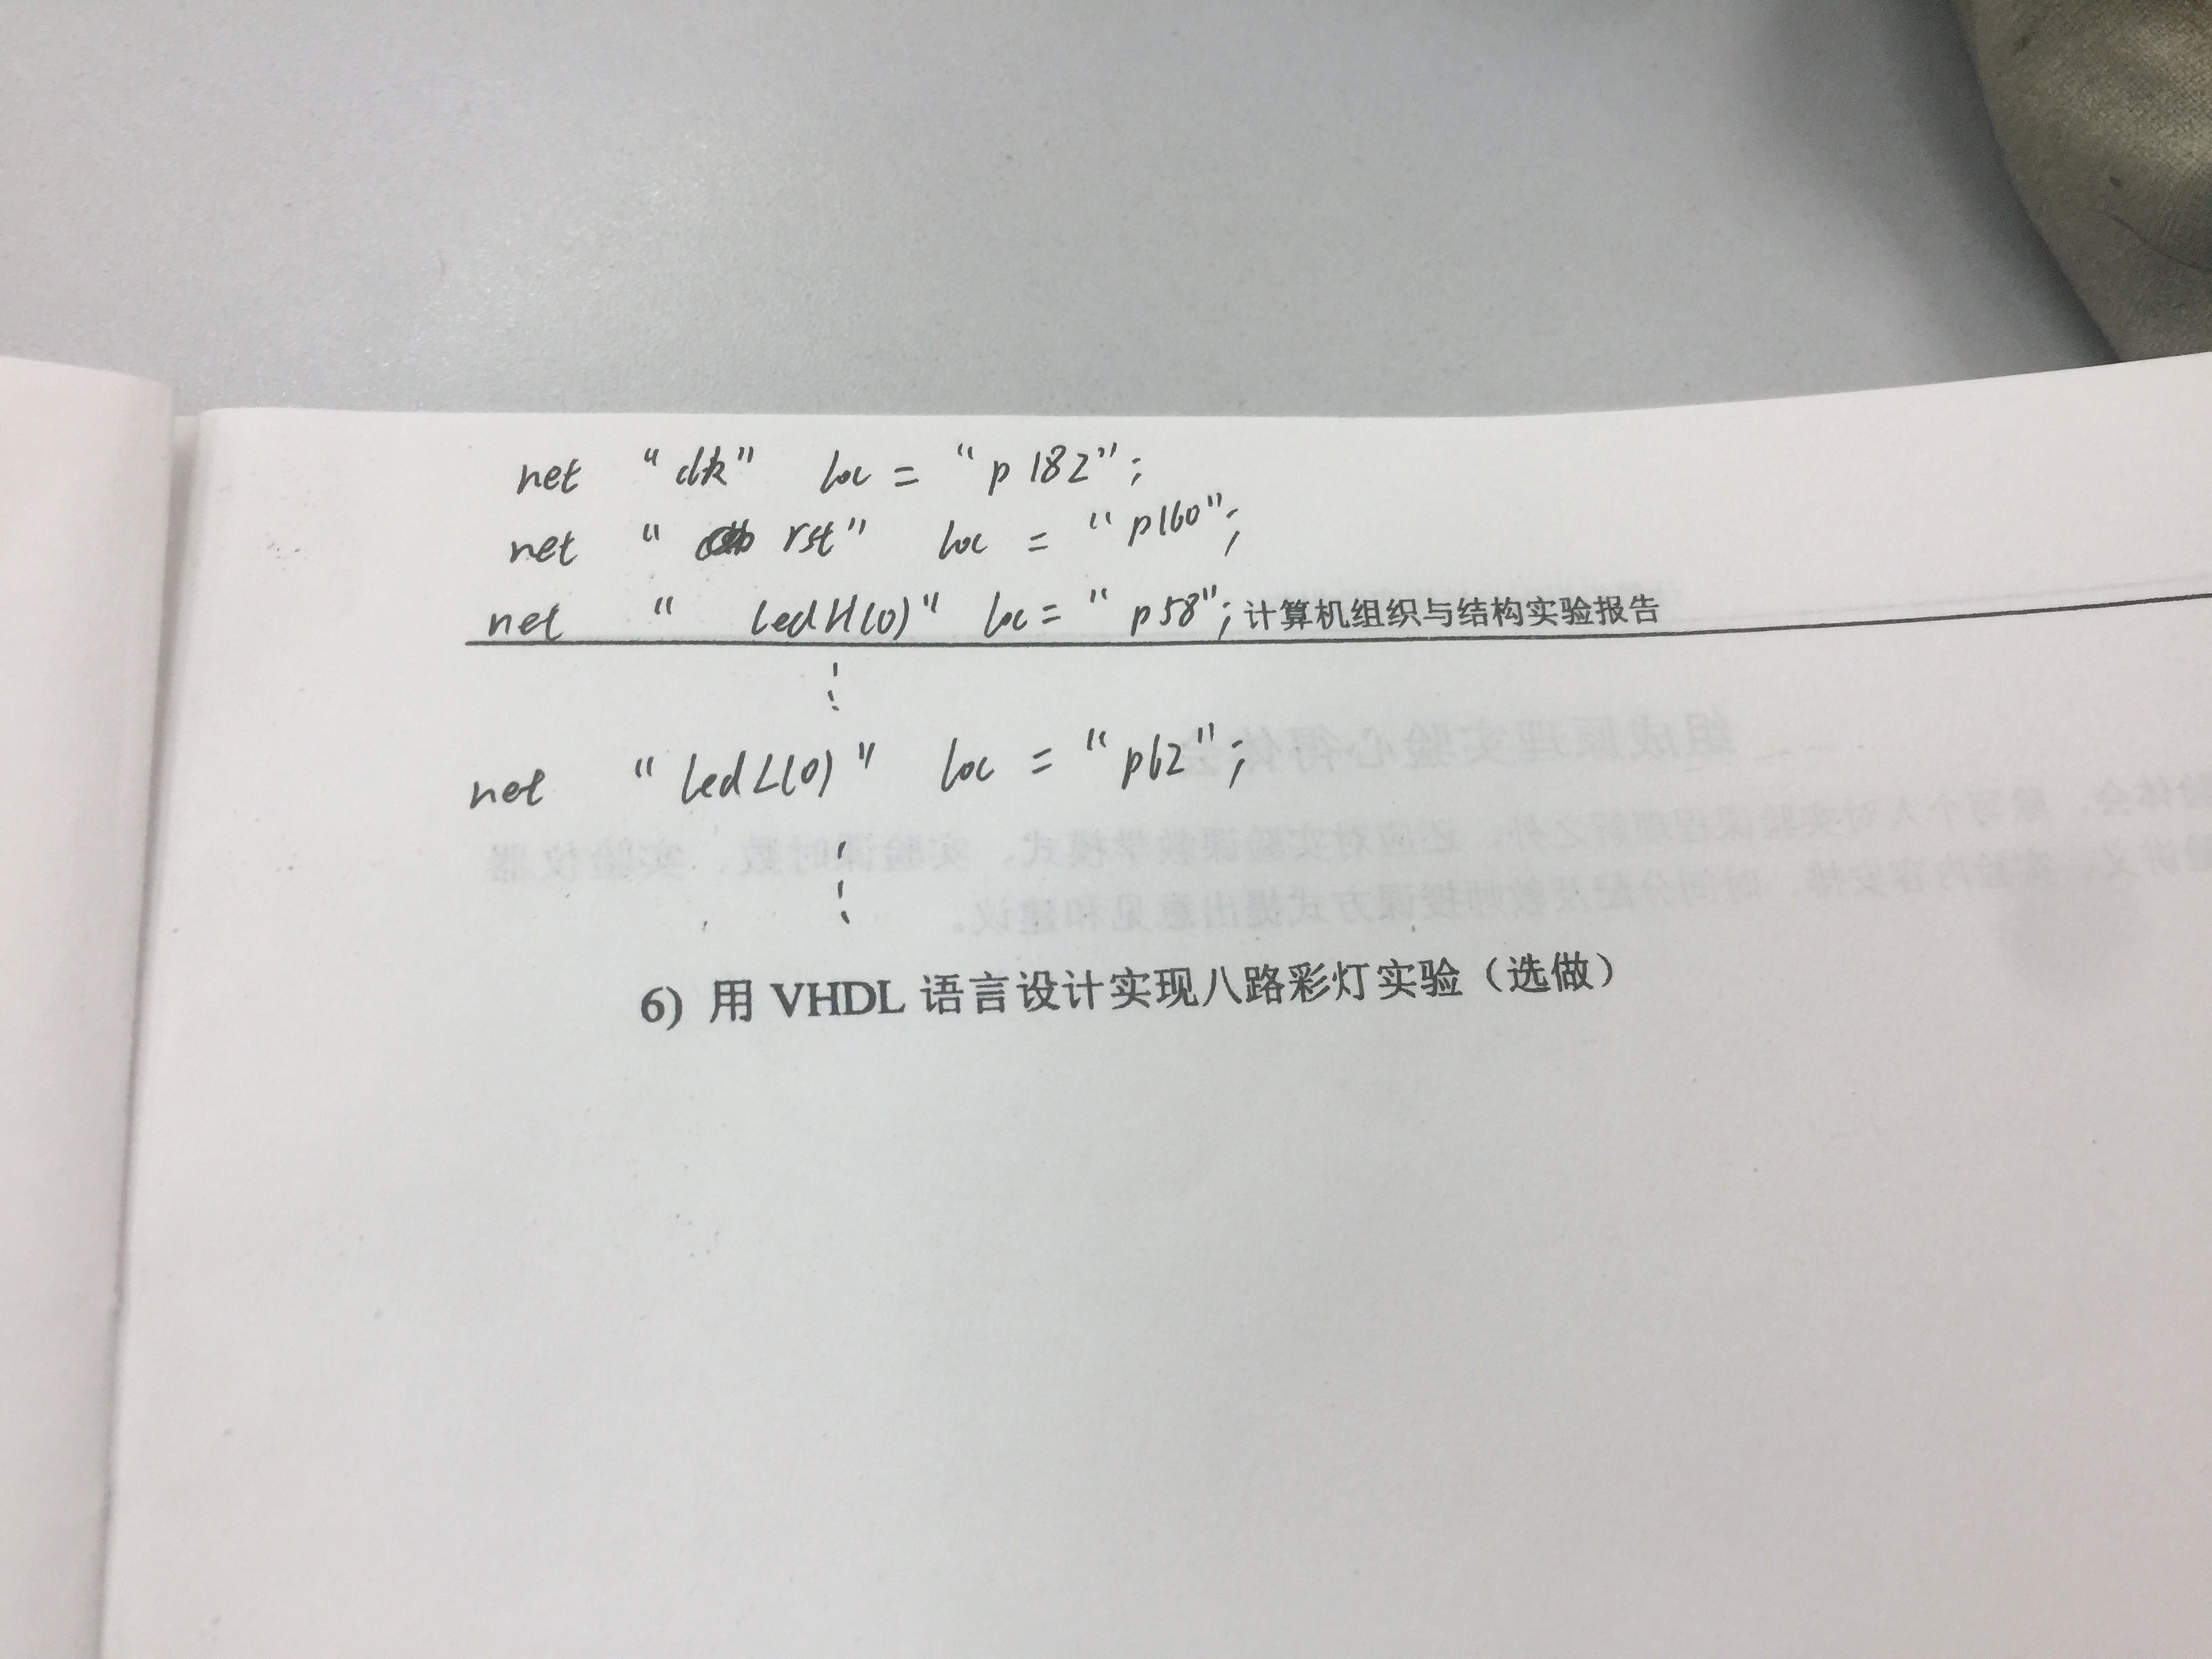 net “clk” loc = “p182”;
net “ rst” loc = “p160”;
net “ ledH(0)” loc = “p58”; 计算机组织与结构实验报告
⋮
net “ledL(0)” loc = “p62”;
⋮
6) 用 VHDL 语言设计实现八路彩灯实验（选做）